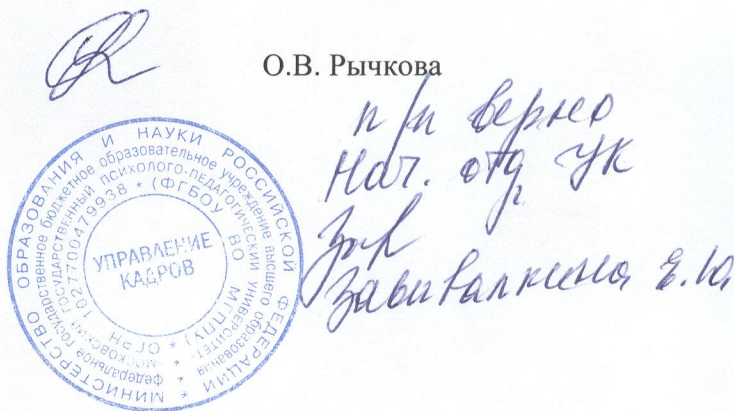 О.В. Рычкова
п/п верно
Нач. отд УК
Завивалкина Е.Ю
МИНИСТЕРСТВО ОБРАЗОВАНИЯ И НАУКИ РОССИЙСКОЙ ФЕДЕРАЦИИ *
федеральное государственное бюджетное образовательное учреждение высшего образования *
МОСКОВСКИЙ ГОСУДАРСТВЕННЫЙ ПСИХОЛОГО-ПЕДАГОГИЧЕСКИЙ УНИВЕРСИТЕТ
* ОГРН 1027700479938 * (ФГБОУ ВО МГППУ)
УПРАВЛЕНИЕ
КАДРОВ